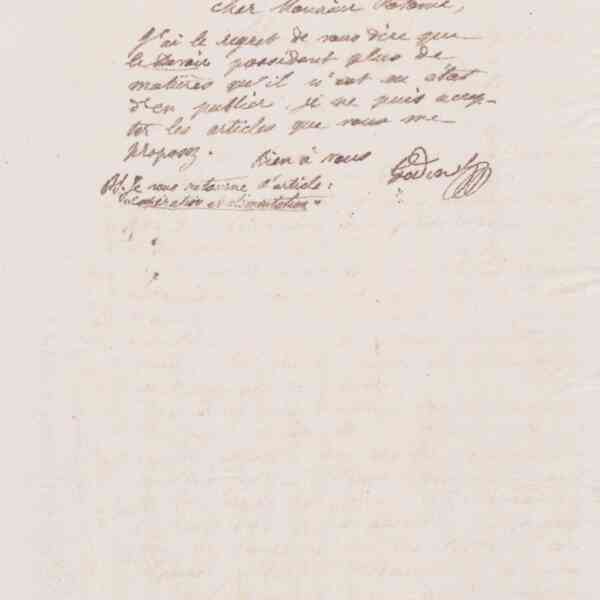 cher Monsieur
J'ai le regret de vous dire que
le Devoir possédant plus de
matières qu'il n'est en état
d'en publier, je ne puis accep-
ter les articles que vous me
proposez.
Bien à vous
Godin
PS. Je vous retourne l'article:
"Coopération et alimentation"